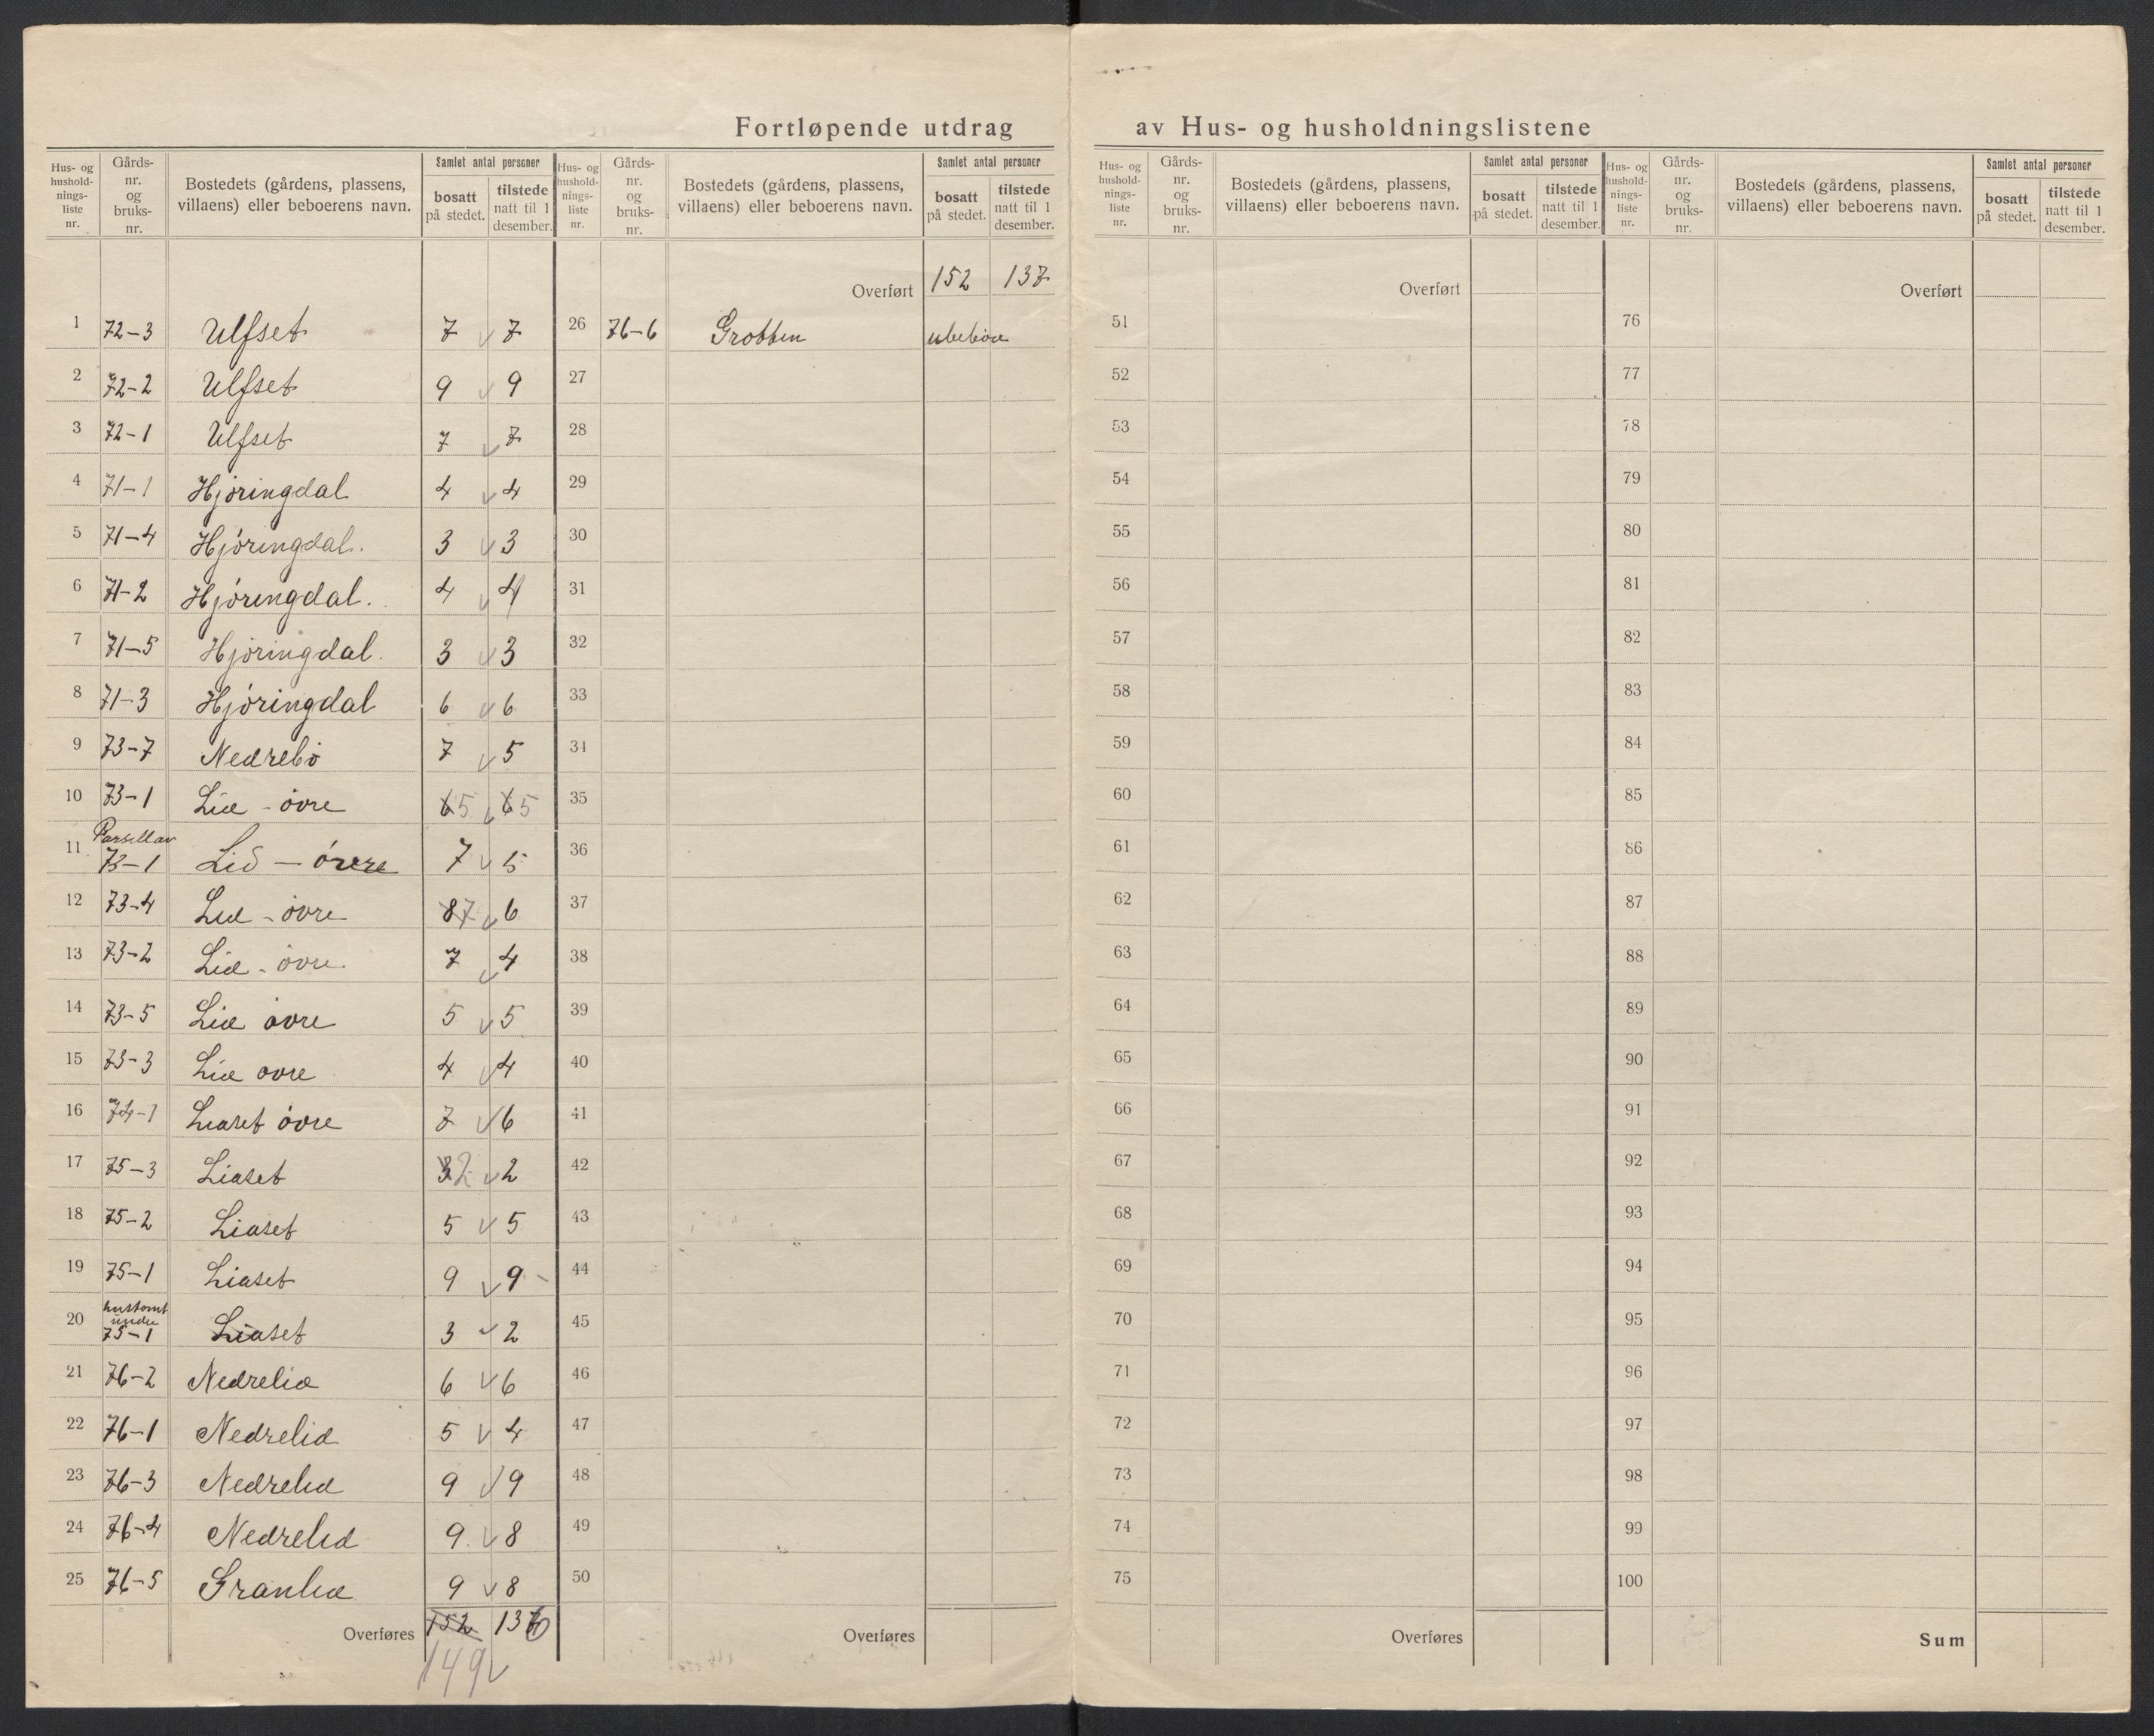 Fortløpende utdrag av Hus- og husholdningslistene
Hus- og hushold-nings-liste nr. | Gårds-nr. og bruks-nr. | Bostedets (gårdens, plassens, villaens) eller beboerens navn. | Samlet antal personer: bosatt på stedet. | tilstede natt til 1 desember.
1 72-3 Ulfset 7 v 7
2 72-2 Ulfset 9 v 9
3 72-1 Ulfset 7 v 7
4 71-1 Hjøringdal 4 v 4
5 71-4 Hjøringdal. 3 v 3
6 71-2 Hjøringdal. 4 v 4
7 71-5 Hjøringdal. 3 v 3
8 71-3 Hjøringdal 6 v 6
9 73-7 Nedrebø 7 v 5
10 73-1 Lid - øvre 6 5 v 6 5
11 Parsell av 73-1 Lid - øvre 7 v 5
12 73-4 Lid - øvre 8 7 v 6
13 73-2 Lid - øvre 7 v 4
14 73-5 Lid øvre 5 v 5
15 73-3 Lid øvre 4 v 4
16 74-1 Liaset øvre 7 v 6
17 75-3 Liaset 3 2 v 2
18 75-2 Liaset 5 v 5
19 75-1 Liaset 9 v 9 -
20 hustomt under 75-1 Liaset 3 v 2
21 76-2 Nedrelid 6 v 6
22 76-1 Nedrelid 5 v 4
23 76-3 Nedrelid 9 v 9
24 76-4 Nedrelid 9 v 8
25 76-5 Granlid 9 v 8
Overføres 152 136
149 v
Hus- og hushold-nings-liste nr. | Gårds-nr. og bruks-nr. | Bostedets (gårdens, plassens, villaens) eller beboerens navn. | Samlet antal personer: bosatt på stedet. | tilstede natt til 1 desember.
Overført 152 137
26 76-6 Grotten ubeboe
27
28
29
30
31
32
33
34
35
36
37
38
39
40
41
42
43
44
45
46
47
48
49
50
Overføres
Hus- og hushold-nings-liste nr. | Gårds-nr. og bruks-nr. | Bostedets (gårdens, plassens, villaens) eller beboerens navn. | Samlet antal personer: bosatt på stedet. | tilstede natt til 1 desember.
Overført
51
52
53
54
55
56
57
58
59
60
61
62
63
64
65
66
67
68
69
70
71
72
73
74
75
Overføres
Hus- og hushold-nings-liste nr. | Gårds-nr. og bruks-nr. | Bostedets (gårdens, plassens, villaens) eller beboerens navn. | Samlet antal personer: bosatt på stedet. | tilstede natt til 1 desember.
Overført
76
77
78
79
80
81
82
83
84
85
86
87
88
89
90
91
92
93
94
95
96
97
98
99
100
Sum